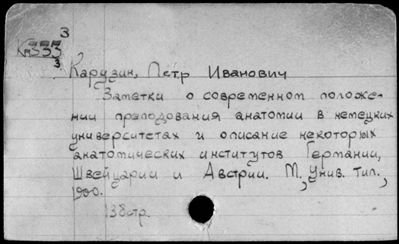 3
К 355
3
Карузин, Петр Иванович
Заметки о современном положе-
нии преподования анатомии в немецких
университетах и описание некоторых
анатомических институтов Германии,
Швейцарии и Австрии. М., Унив. тип.,
1900.
138стр.